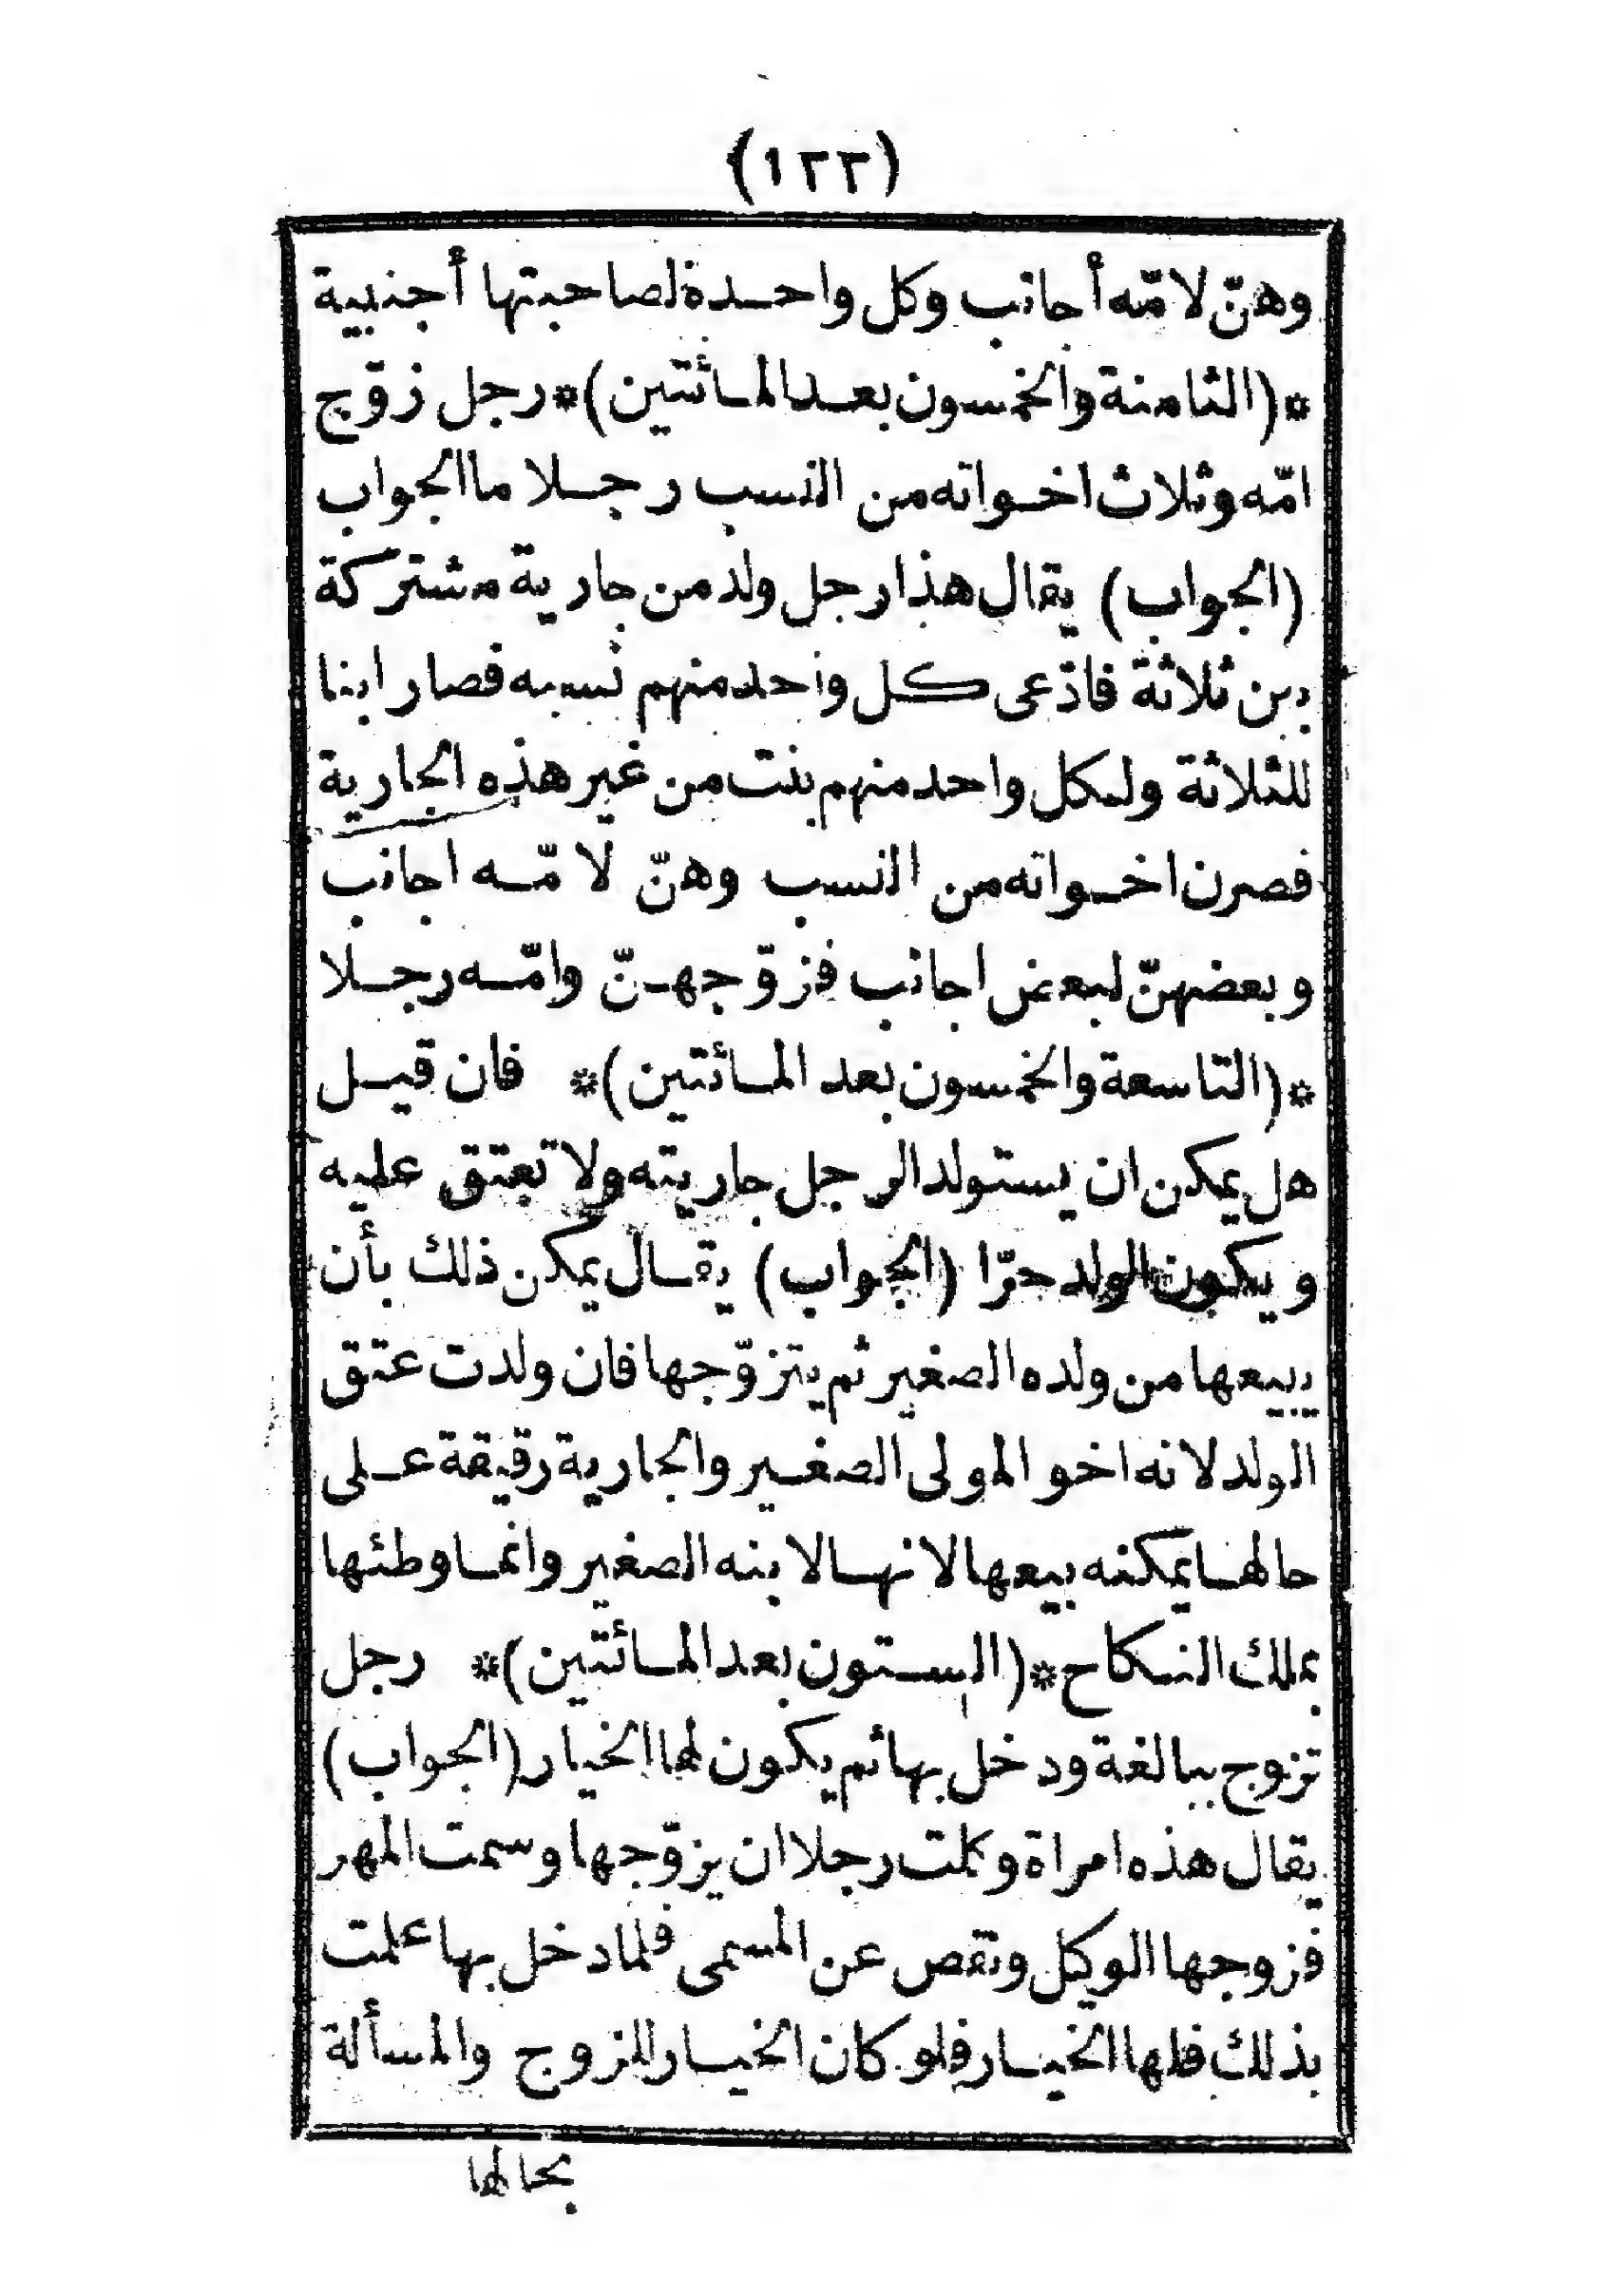 (١٢٢)
وهنّ لامّه أجانب وكل واحدة لصاحبتها أجنبية
*(الثامنة والخمسون بعد المائتين)* رجل زوّج
امّه وثلاث اخواته من النسب رجلا ما الجواب
(الجواب) يقال هذا رجل ولد من جارية مشتركة
بين ثلاثة فادّعى كل واحد منهم نسبه فصار ابنا
للثلاثة ولكل واحد منهم بنت من غير هذه الجارية
فصرن اخواته من النسب وهنّ لامّه اجانب
وبعضهنّ لبعض اجانب فزوّجهنّ وامّه رجلا
*(التاسعة والخمسون بعد المائتين)* فان قيل
هل يمكن ان يستولد الرجل جاريته ولا تعتق عليه
ويكون الولد حرّا (الجواب) يقال يمكن ذلك بأن
يبيعها من ولده الصغير ثم يتزوّجها فان ولدت عتق
الولد لانه اخو المولى الصغير والجارية رقيقة على
حالها يمكنه بيعها لانها لابنه الصغير وانما وطئها
بملك النكاح *(الستون بعد المائتين)* رجل
تزوج ببالغة ودخل بها ثم يكون لها الخيار (الجواب)
يقال هذه امراة وكلت رجلا ان يزوّجها وسمت المهر
فزوجها الوكيل ونقص عن المسمى فلما دخل بها علمت
بذلك فلها الخيار فلو كان الخيار للزوج والمسألة
بحالها